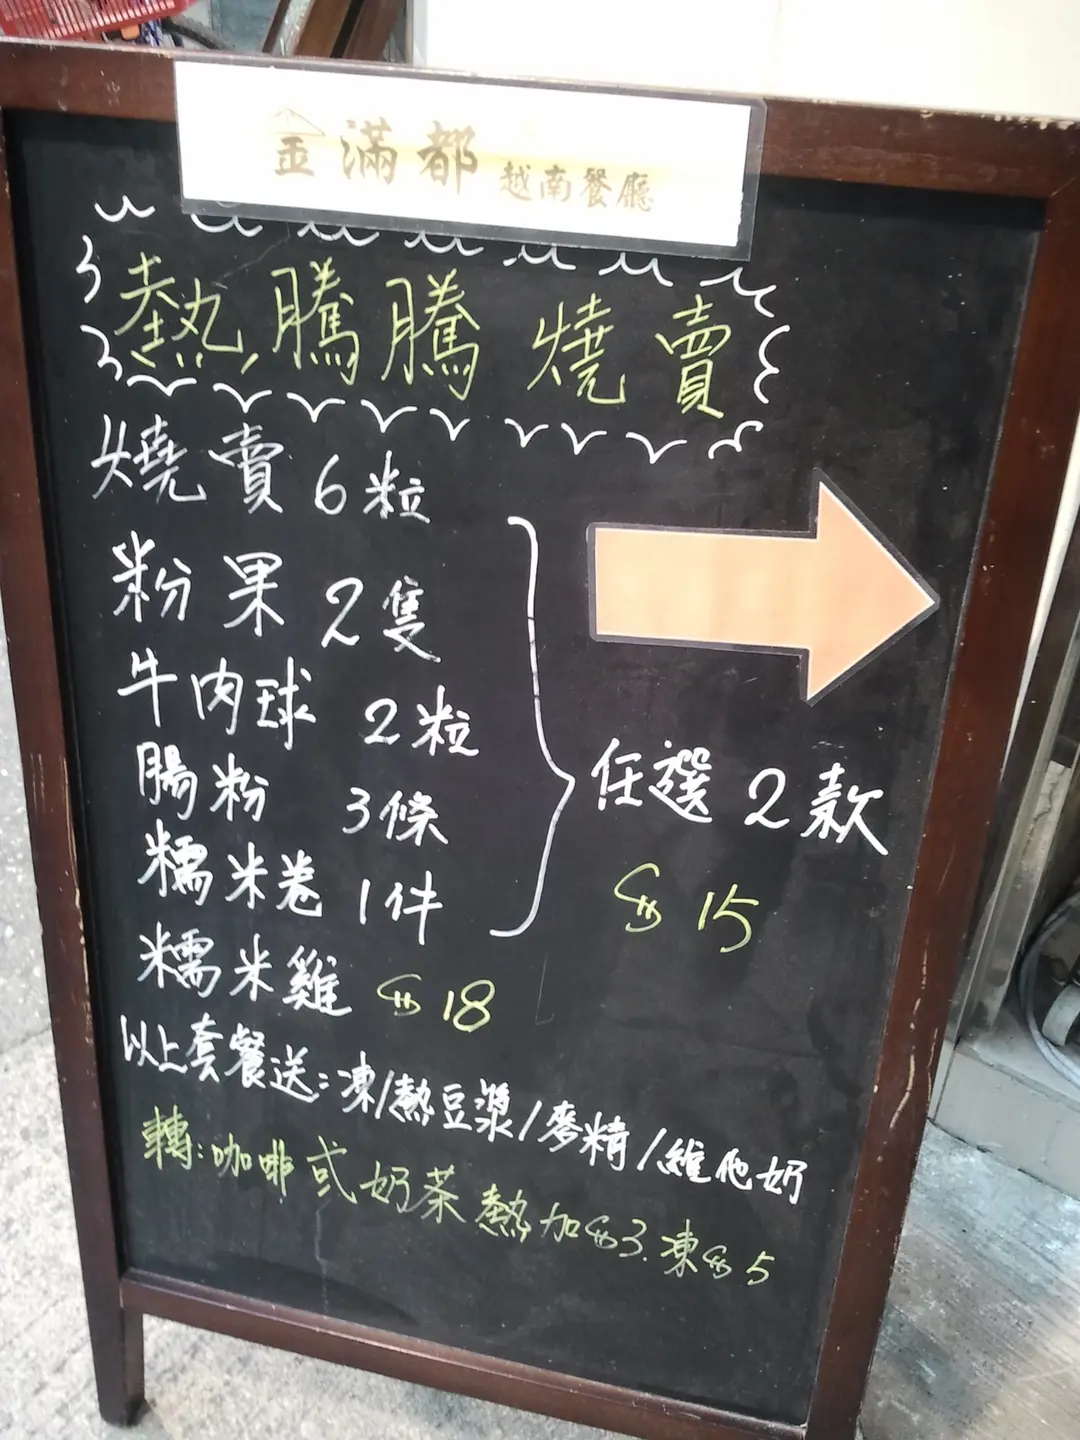 金滿都 越南餐廳
熱騰騰 燒賣
燒賣 6粒
粉果 2隻
牛肉球 2粒
腸粉 3條
糯米卷 1件
任選 2款
$15
糯米雞 $18
以上套餐送:凍/熱豆漿/麥精/維他奶
轉:咖啡或奶茶熱加$3.凍$5